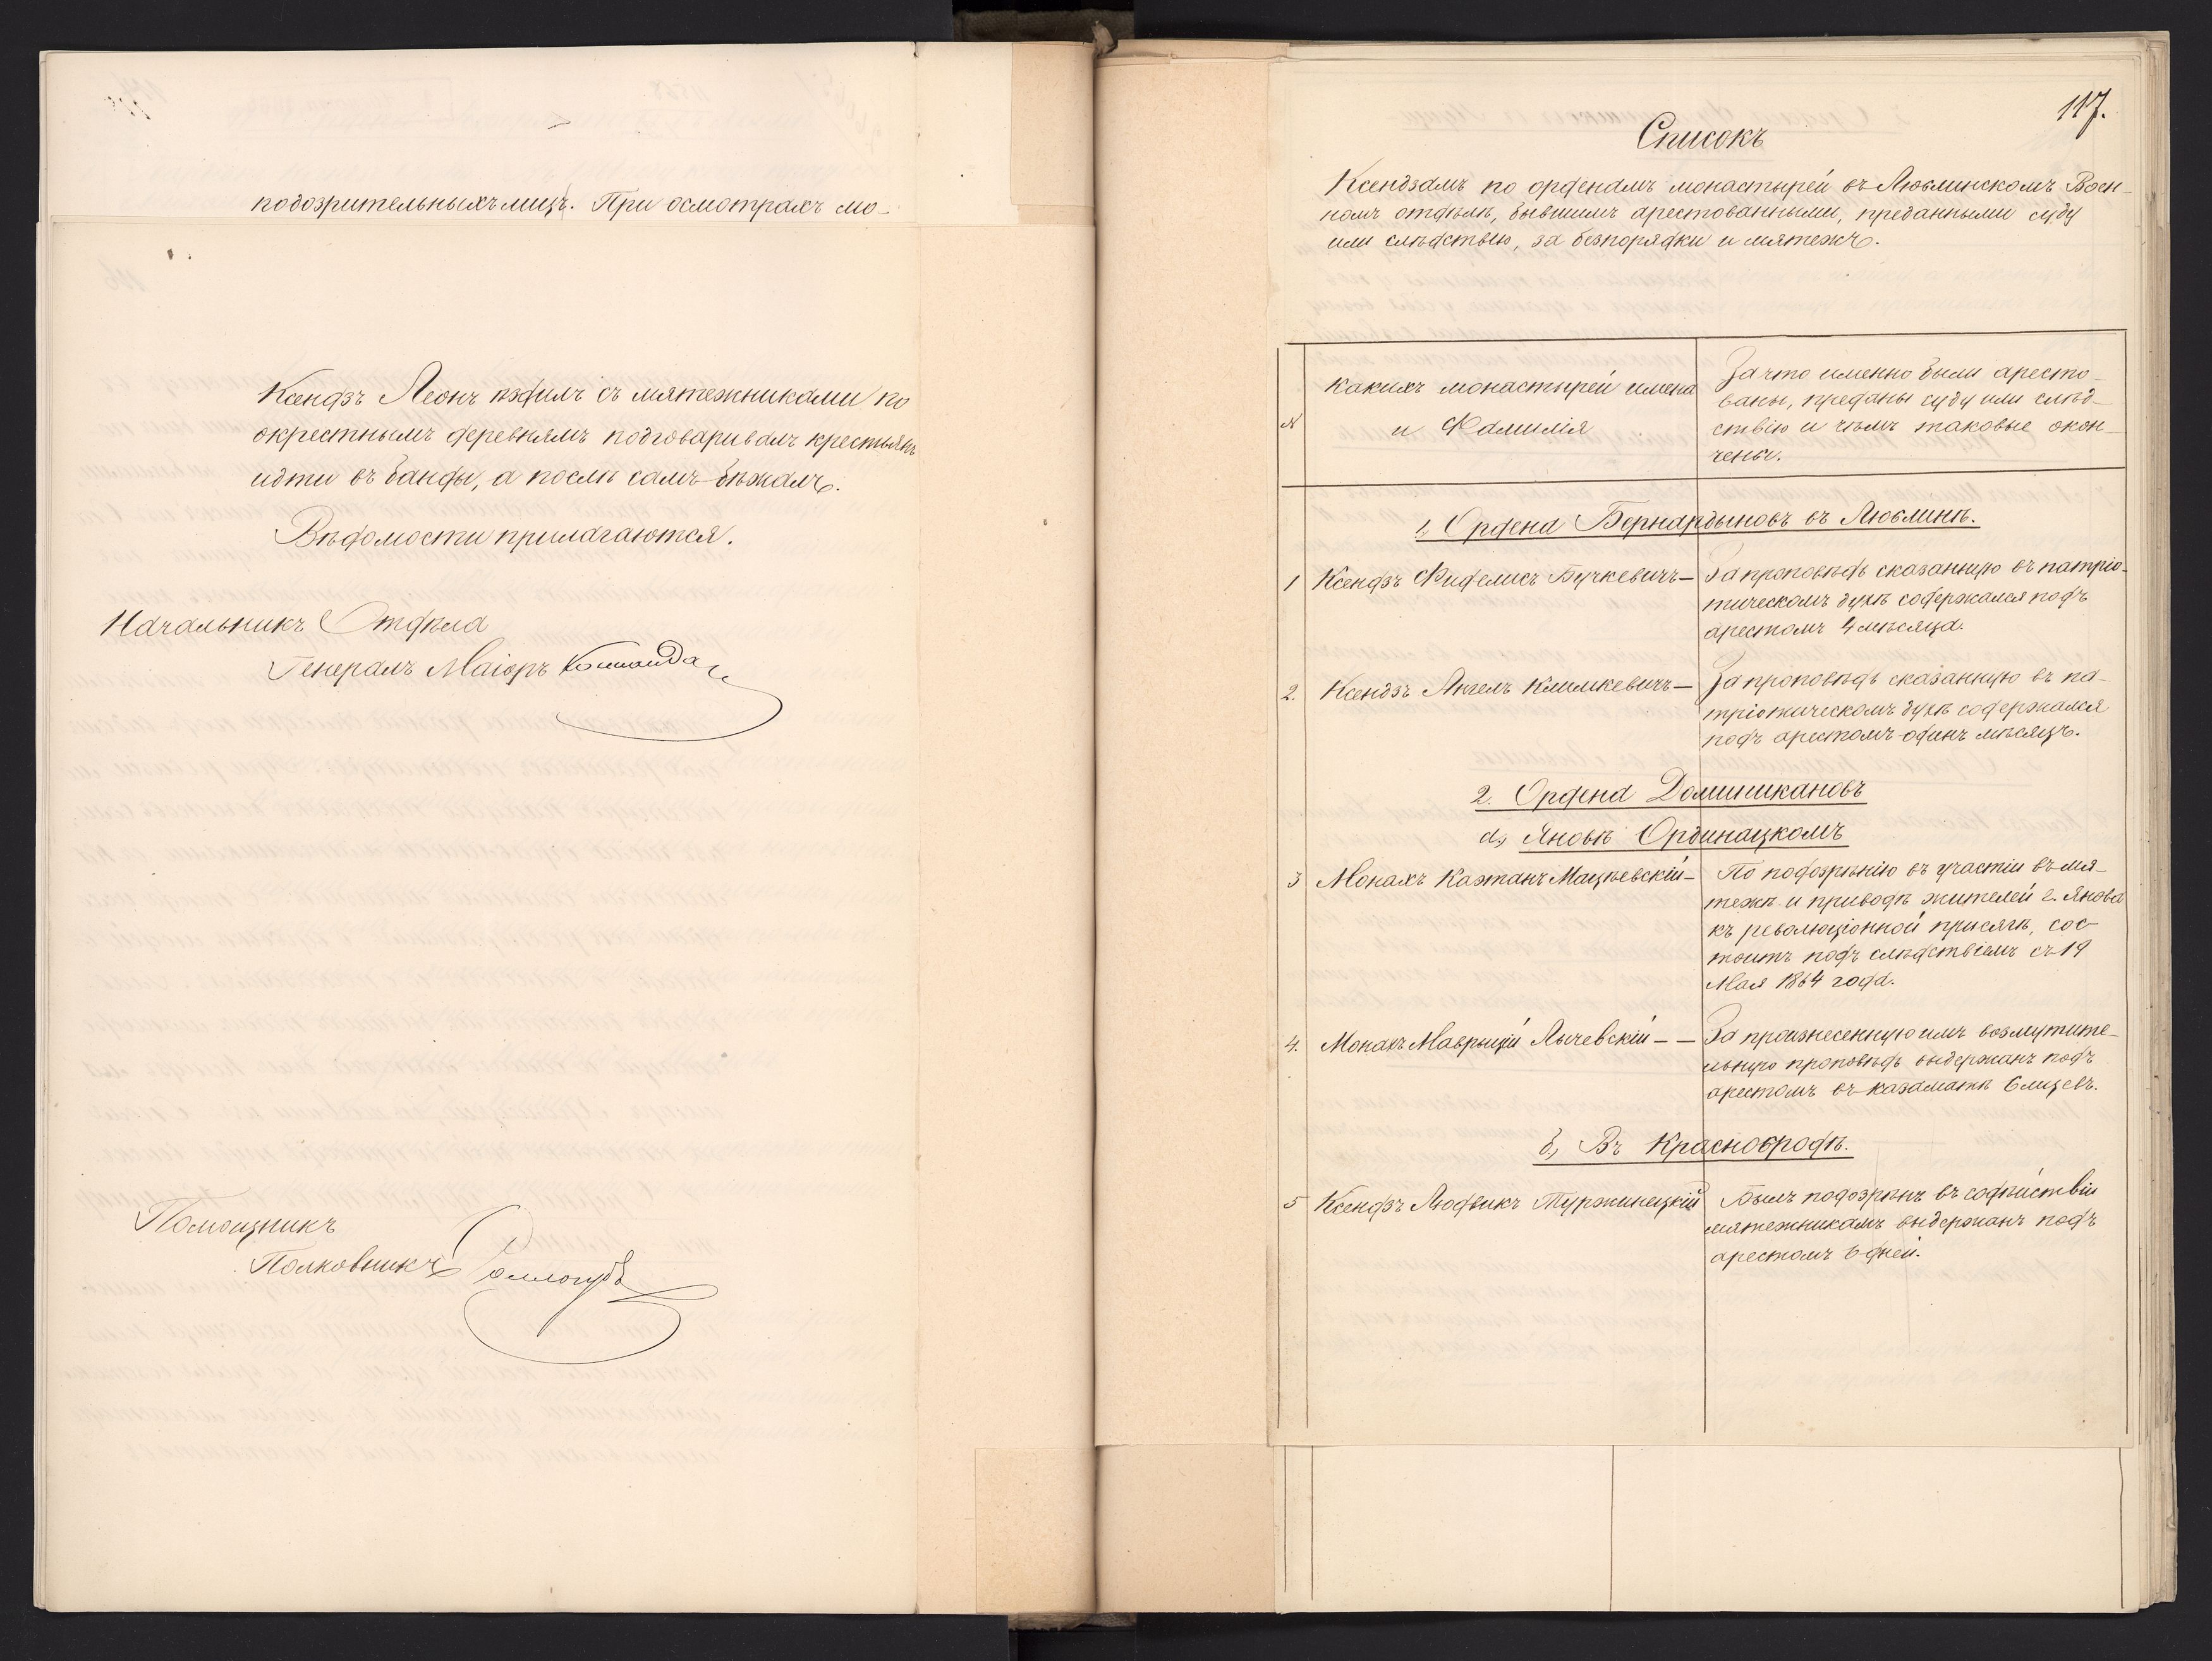 подозрительныхъ лицъ. При осмотрахъ мо-
Ксендзъ Леонъ ѣздилъ съ мятежниками по
окрестнымъ деревнямъ подговаривалъ крестьянъ
идти въ банды, а послѣ самъ бѣжалъ.
Вѣдомости прилагаются.
Начальникъ Отдѣла
Генералъ Маіоръ
Помощникъ
Полковникъ
117.
Списокъ
Ксендзамъ по орденамъ монастырей въ Люблинскомъ Воен-
номъ отдѣлѣ, бывшимъ арестованными, преданными суду
или слѣдствію, за безпорядки и мятежъ.
№
Какихъ монастырей имена
и Фамилія
За что именно были аресто-
ваны, преданы суду или слѣд-
ствію и чѣмъ таковые окон-
чены.
1, Ордена Бернардыновъ въ Люблинѣ.
1 Ксендзъ Фиделисъ Бучкевичъ —
За проповѣдь сказанную въ патріо-
тическомъ духѣ содержался подъ
арестомъ 4 мѣсяца.
2. Ксендзъ Ангелъ Климкевичъ —
За проповѣдь сказанную въ па-
тріотическомъ духѣ содержался
подъ арестомъ один мѣсяцъ.
2. Ордена Доминикановъ
а, Яновѣ Ординацкомъ
3 Монахъ Каэтанъ Мацѣевскій —
По подозрѣнію въ участіи въ мя-
тежѣ и приводѣ жителей г. Янова
къ революціонной присягѣ, сос-
тоитъ подъ слѣдствіемъ съ 19
Мая 1864 года.
4. Монахъ Маврыцій Лычевскій — —
За произнесенную имъ возмутите-
льную проповѣдь выдержанъ подъ
арестомъ въ казаматѣ 6 мцевъ.
б, Въ Краснобродѣ.
5 Ксендзъ Людвикъ Туржинецкій
Былъ подозрѣнъ въ содѣйствіи
мятежникамъ выдержанъ подъ
арестомъ 6 дней.